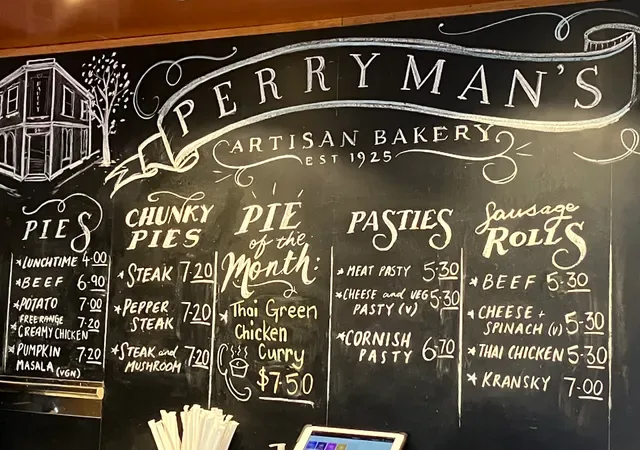 PERRYMAN'S
ARTISAN BAKERY
EST 1925
PIES
LUNCHTIME 4.00
BEEF 6.90
POTATO 7.00
FREE RANGE
CREAMY CHICKEN 7.20
PUMPKIN
MASALA (VGN) 7.20
CHUNKY
PIES
STEAK 7.20
PEPPER
STEAK 7.20
STEAK and
MUSHROOM 7.20
PIE
of the
Month:
Thai Green
Chicken
Curry
$7.50
PASTIES
MEAT PASTY 5.30
CHEESE and VEG 5.30
PASTY (V)
CORNISH
PASTY 6.70
Sausage
ROLLS
BEEF 5.30
CHEESE +
SPINACH (V) 5.30
THAI CHICKEN 5.30
KRANSKY 7.00